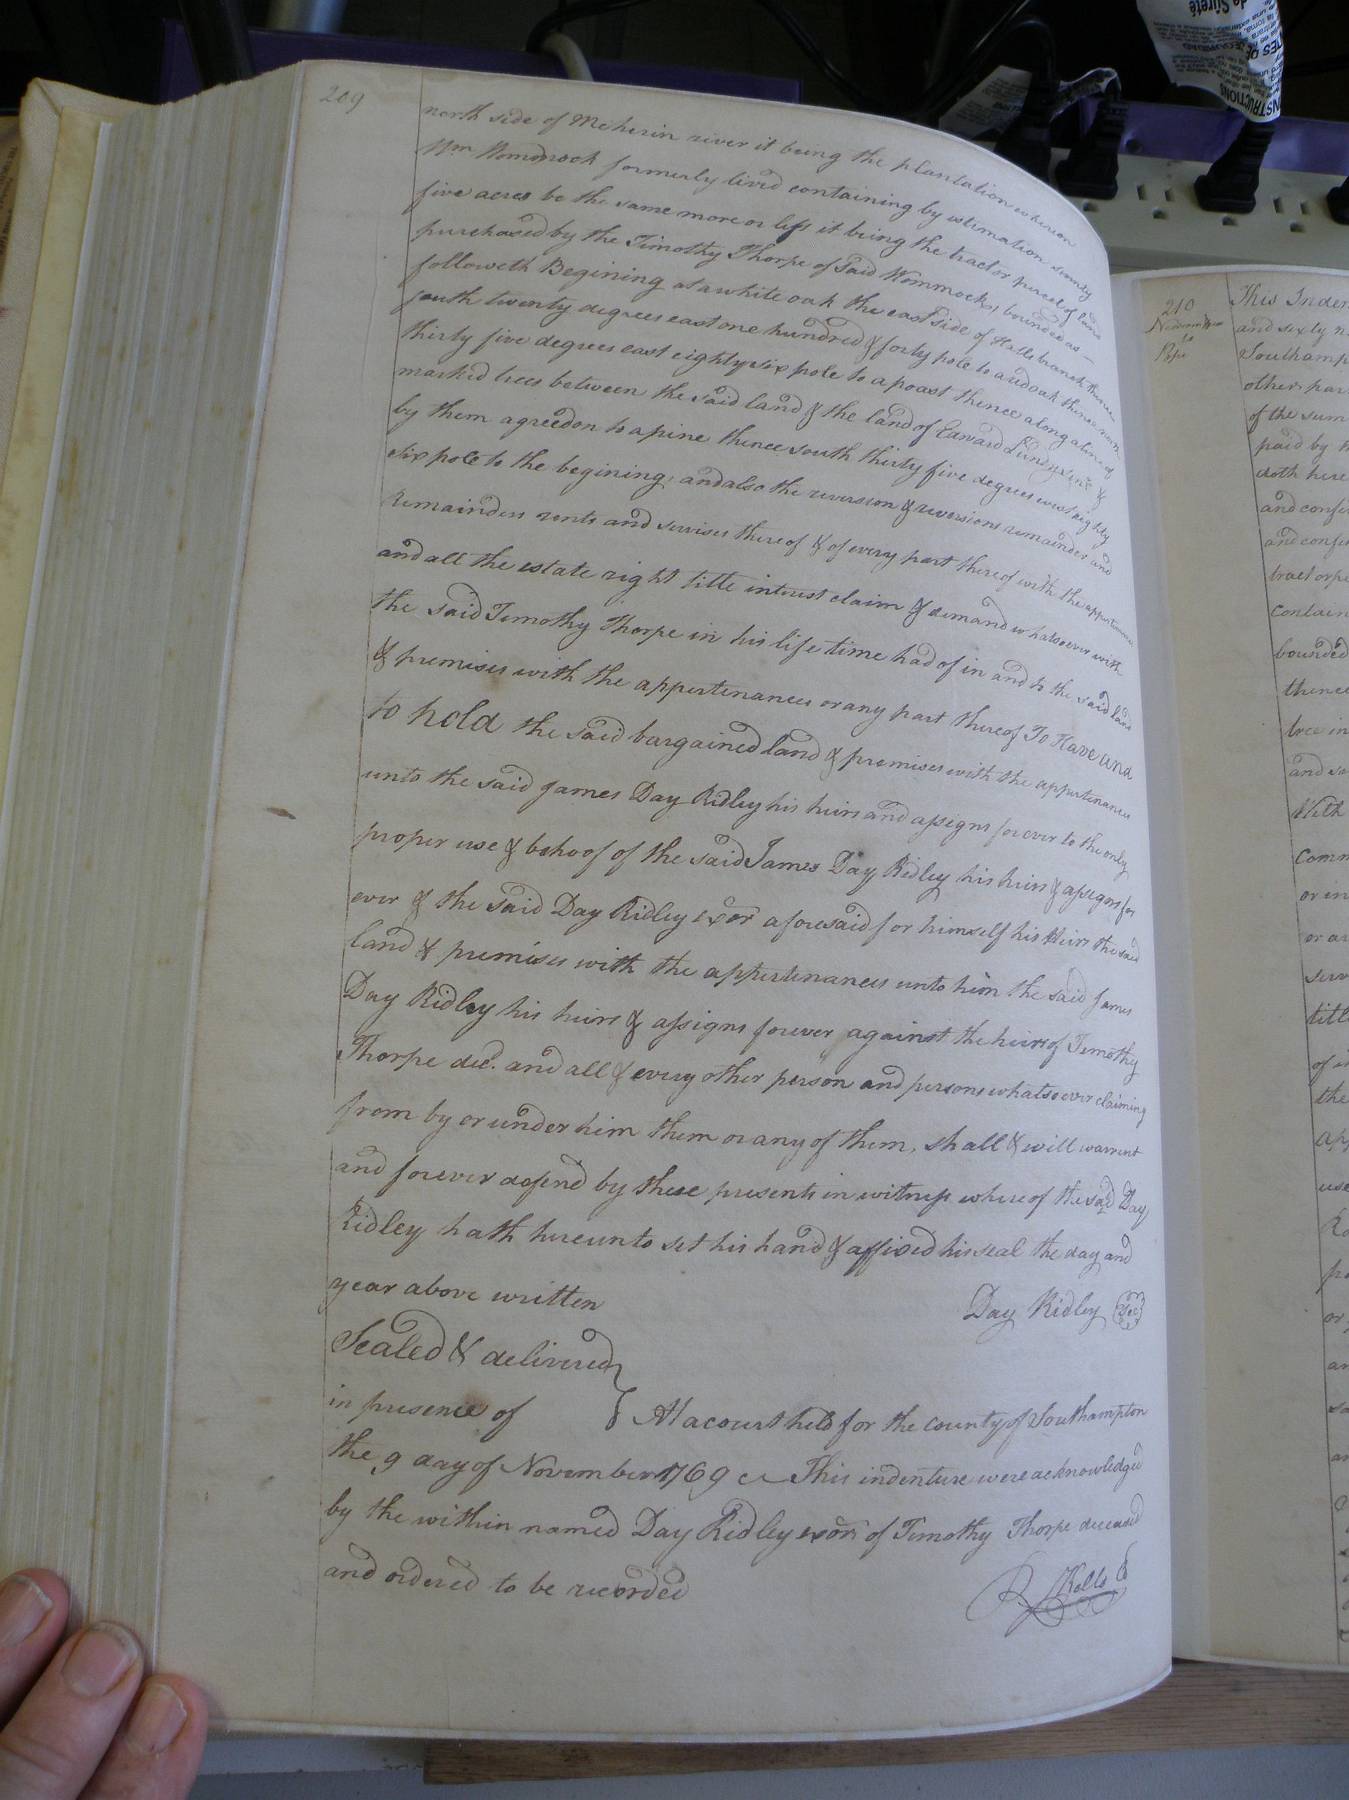 209
north side of Meherin river it being the plantation whereon
Wm Wommock formerly lived containing by estimation seventy
five acres be the same more or less it being the tract or parcel of land
purchased by the Timothy Thorpe of said Wommock, bounded as
followeth Begining at a white oak the east side of Halls branch thence
south twenty degrees east one hundred & forty pole to a red oak thence north
thirty five degrees east eighty six pole to a poast thence along a line of
markid trees between the said land & the land of Edward Lundy &
by them agreed on to a pine thence south thirty five degrees west eighty
six pole to the begining, and also the reversion & reversions remainder and
remainders rents and servises thereof & of every part thereof with the appurtenances
and all the estate right title intrust claim & demand whatsoever with
the said Timothy Thorpe in his life time had of in and to the said land
& premises with the appurtenances or any part thereof To Have and
to hold the said bargained land & premises with the appurtenances
unto the said James Day Ridley his heirs and assigns forever to the only
proper use & behoof of the said James Day Ridley his heirs & assigns for
ever & the said Day Ridley exor aforesaid for himself his heirs the said
land & premises with the appurtenances unto him the said James
Day Ridley his heirs & assigns forever against the heirs of Timothy
Thorpe decd. and all & every other person and persons whatsoever claiming
from by or under him them or any of them, shall & will warrent
and forever defend by these presents in witness whereof the said Day
Ridley hath hereunto set his hand & affixed his seal the day and
year above written
Day Ridley
Sealed & delivered
in presence of
At a court held for the county of Southampton
the 9 day of November 1769 This indenture were acknowledged
by the within named Day Ridley exor of Timothy Thorpe deceased
and ordered to be recorded
R Kello
210
to
Pope
This Inden
and sixty n
Southamp
other par
of the sum
paid by
doth here
and conf
and conf
tract or p
Contain
bounded
thence
tree in
and sa
With
Comm
or in
or a
serv
titl
of i
the
app
use